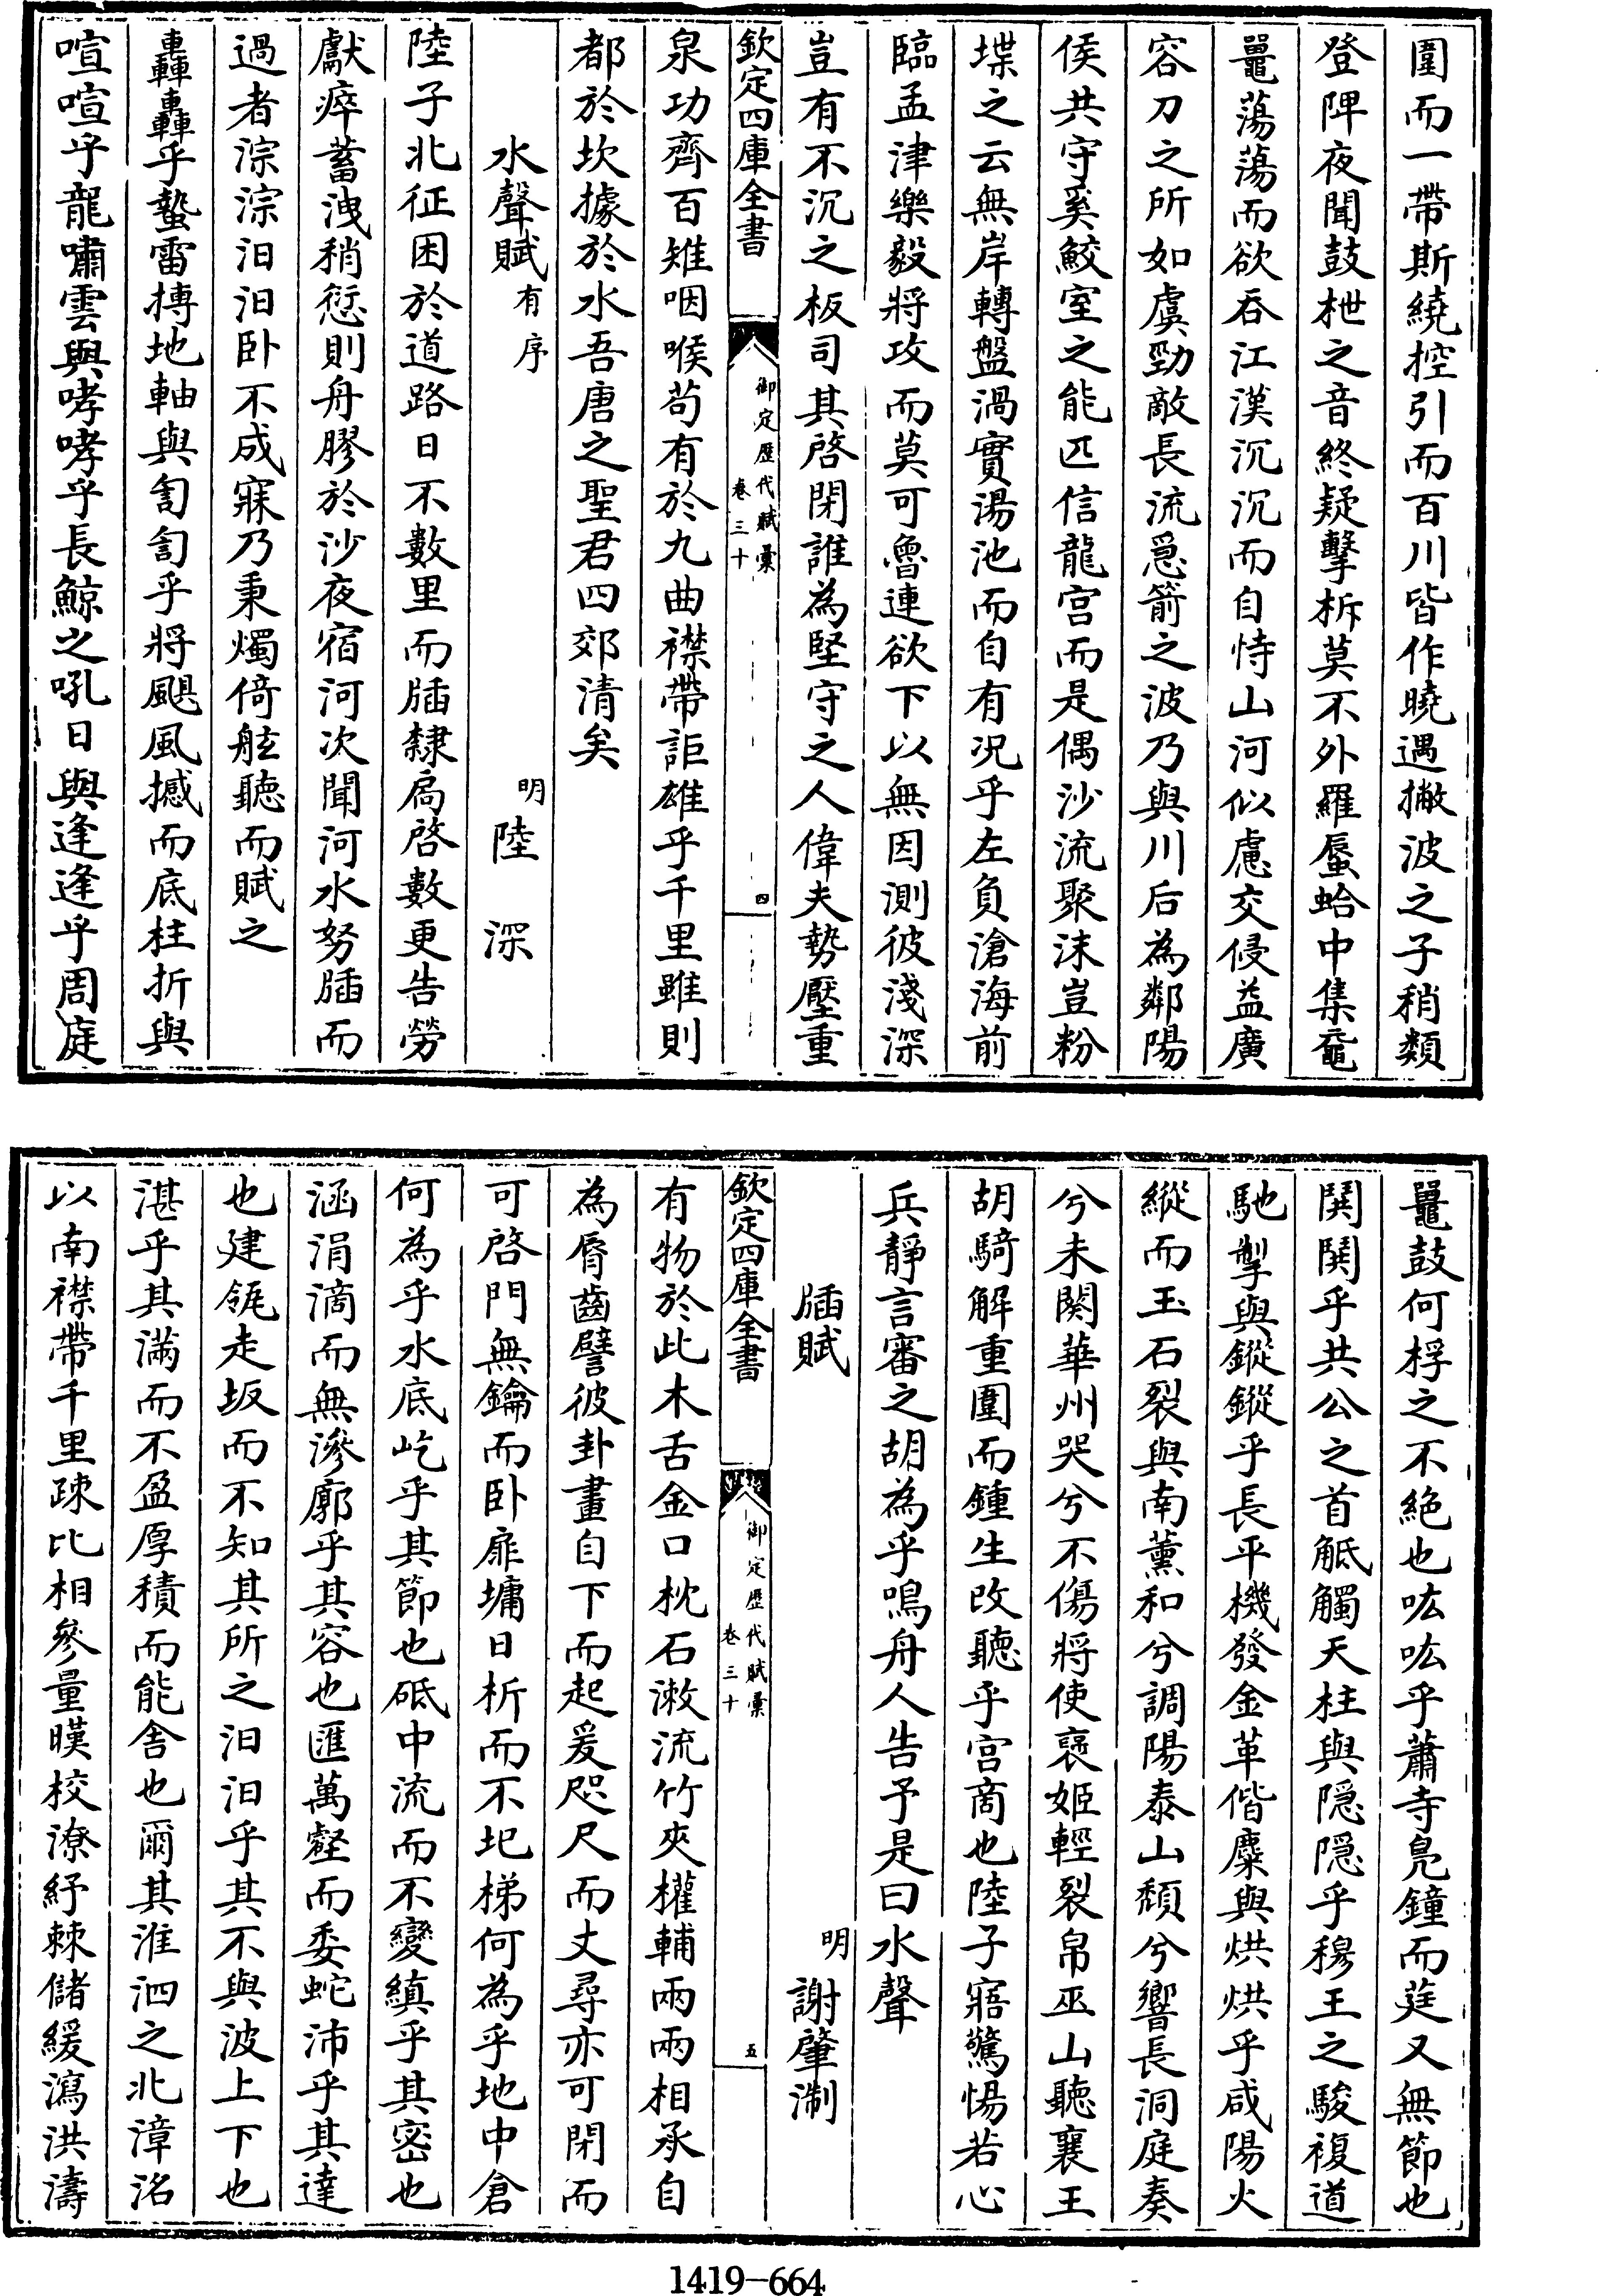 圍而一帶斯繞控引而百川皆作曉遇撇波之子稍類
登陴夜聞鼓枻之音終疑擊柝莫不外羅蜃蛤中集黿
鼉蕩蕩而欲吞江漢沉沉而自恃山河似慮交侵益廣
容刀之所如虞勁敵長流急箭之波乃與川后為鄰陽
侯共守奚鮫室之能匹信龍宫而是偶沙流聚沫豈粉
堞之云無岸轉盤渦實湯池而自有况乎左負滄海前
臨孟津樂毅將攻而莫可魯連欲下以無因測彼淺深
豈有不沉之板司其啓閉誰為堅守之人偉夫勢壓重
欽定四庫全書
御定歷代賦彙
卷三十
四
泉功齊百雉咽喉苟有於九曲襟帶詎雄乎千里雖則
都於坎據於水吾唐之聖君四郊清矣
水聲賦有序
明陸深
陸子北征困於道路日不數里而牐隸扃啓數更告勞
獻瘁蓄洩稍愆則舟膠於沙夜宿河次聞河水努牐而
過者淙淙汩汩卧不成寐乃秉燭倚舷聽而賦之
轟轟乎蟄雷摶地軸與訇訇乎將颶風撼而底柱折與
喧喧乎龍嘯雲與哮哮乎長鯨之吼日與逢逢乎周庭
鼉鼓何桴之不絶也吰吰乎蕭寺鳬鐘而莛又無節也
鬨鬨乎共公之首觝觸天柱與隠隠乎穆王之駿複道
馳掣與鏦鏦乎長平機發金革偕麋與烘烘乎咸陽火
縱而玉石裂與南薰和兮調陽泰山頹兮響長洞庭奏
兮未闋華州哭兮不傷將使褒姬輕裂帛巫山聽襄王
胡騎解重圍而鍾生改聽乎宫商也陸子寤驚惕若心
兵靜言審之胡為乎鳴舟人告予是曰水聲
牐賦
明謝肇淛
欽定四庫全書
御定歷代賦彙
卷三十
五
有物於此木舌金口枕石漱流竹夾權輔兩兩相承自
為脣齒譬彼卦畫自下而起爰咫尺而丈尋亦可閉而
可啓門無鑰而卧扉墉日析而不圯梯何為乎地中倉
何為乎水底屹乎其節也砥中流而不變縝乎其密也
涵涓滴而無滲廓乎其容也匯萬壑而委蛇沛乎其達
也建瓴走坂而不知其所之汩汩乎其不與波上下也
湛乎其滿而不盈厚積而能舍也爾其淮泗之北漳洺
以南襟帶千里疎比相參量暵校潦紓棘儲緩瀉洪濤
1419-664